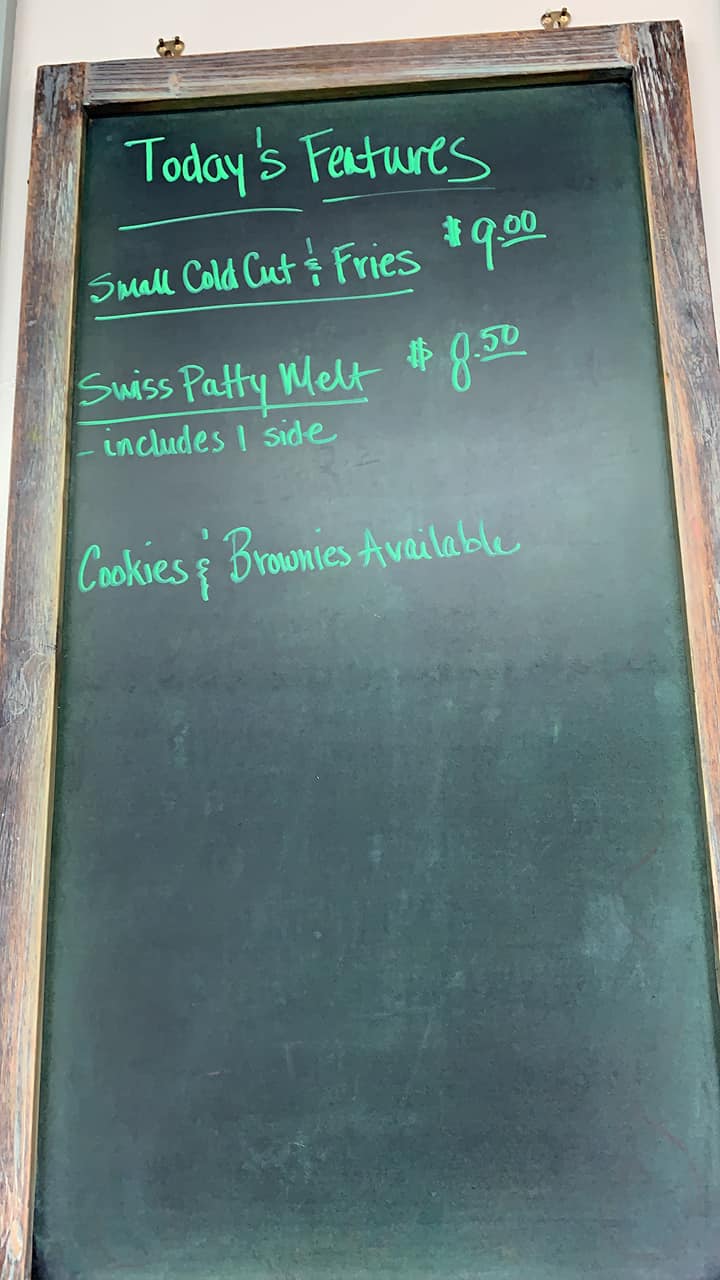 Today's Features
Small Cold Cut & Fries $9.00
Swiss Patty Melt $8.50
- includes 1 side
Cookies & Brownies Available